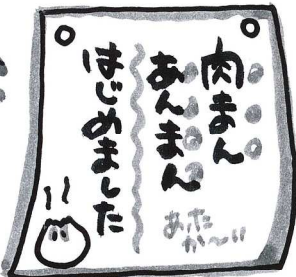 肉まん
あんまん
はじめました
あたか〜い